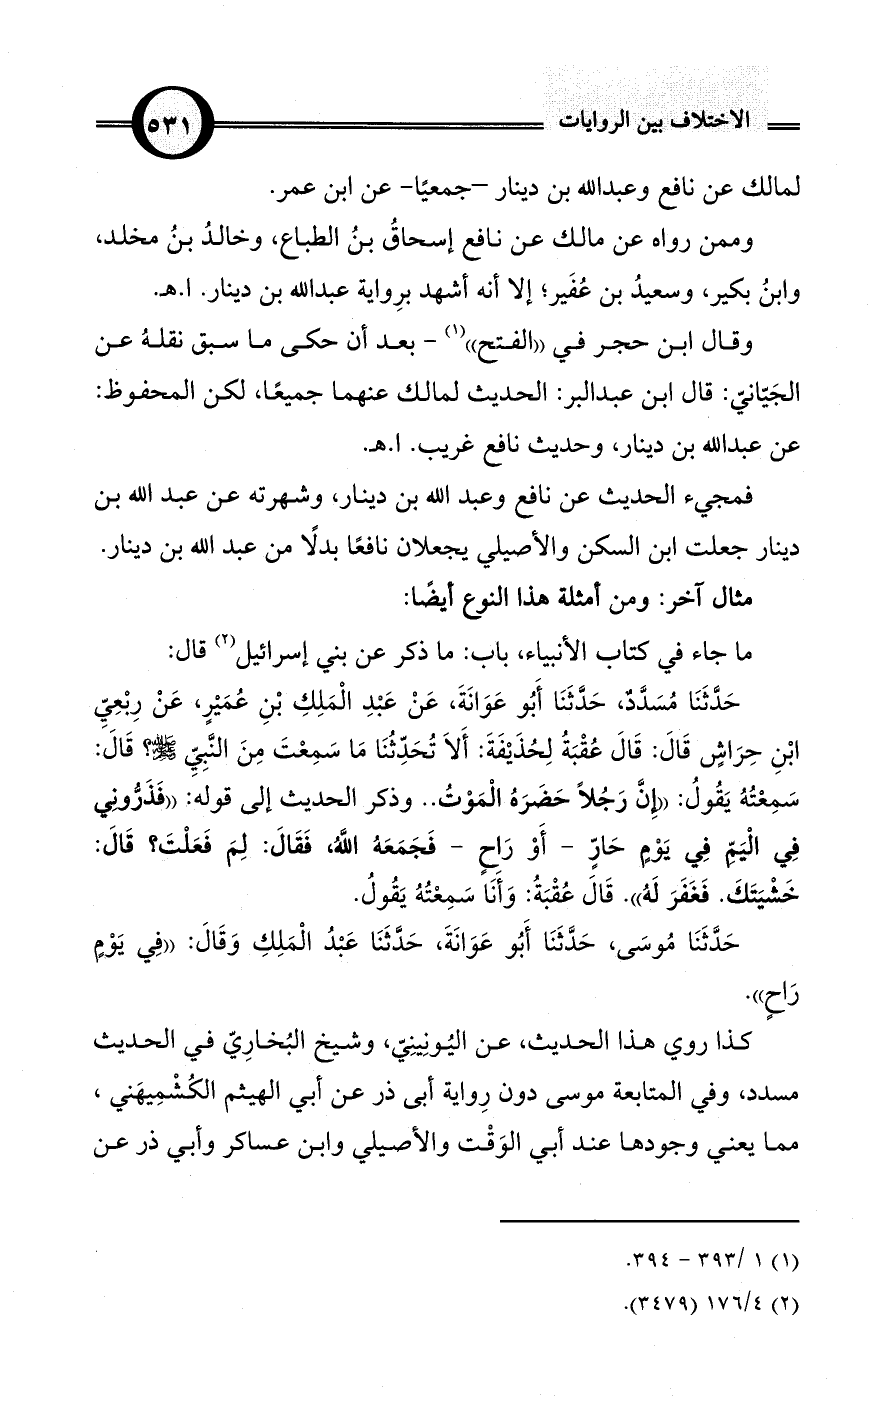 الاختلاف بين الروايات ٥٣١
لمالك عن نافع وعبدالله بن دينار -جمعيًا- عن ابن عمر.
وممن رواه عن مالك عن نافع إسحاقُ بنُ الطباع، وخالدُ بنُ مخلد،
وابنُ بكير، وسعيدُ بن عُفَير؛ إلا أنه أشهد برِواية عبدالله بن دينار. ا.هـ.
وقال ابن حجر في ((الفتح))(١) - بعد أن حكى ما سبق نقلهُ عن
الجَيّانيّ: قال ابن عبدالبر: الحديث لمالك عنهما جميعًا، لكن المحفوظ:
عن عبدالله بن دينار، وحديث نافع غريب. ا.هـ.
فمجيء الحديث عن نافع وعبد الله بن دينار، وشهرته عن عبد الله بن
دينار جعلت ابن السكن والأصيلي يجعلان نافعًا بدلًا من عبد الله بن دينار.
مثال آخر: ومن أمثلة هذا النوع أيضًا:
ما جاء في كتاب الأنبياء، باب: ما ذكر عن بني إسرائيل(٢) قال:
حَدَّثَنَا مُسَدَّدٌ، حَدَّثَنَا أَبُو عَوَانَةَ، عَنْ عَبْدِ الْمَلِكِ بْنِ عُمَيْرٍ، عَنْ رِبْعِيِّ
ابْنِ حِرَاشٍ قَالَ: قَالَ عُقْبَةُ لِحُذَيْفَةَ: أَلاَ تُحَدِّثُنَا مَا سَمِعْتَ مِنَ النَّبِيِّ ﷺ؟ قَالَ:
سَمِعْتُهُ يَقُولُ: ((إِنَّ رَجُلاً حَضَرَهُ الْمَوْتُ.. وذكر الحديث إلى قوله: ((فَذَرُّونِي
فِي الْيَمِّ فِي يَوْمٍ حَارٍّ - أَوْ رَاحٍ - فَجَمَعَهُ اللَّهُ، فَقَالَ: لِمَ فَعَلْتَ؟ قَالَ:
خَشْيَتَكَ. فَغَفَرَ لَهُ)). قَالَ عُقْبَةُ: وَأَنَا سَمِعْتُهُ يَقُولُ.
حَدَّثَنَا مُوسَى، حَدَّثَنَا أَبُو عَوَانَةَ، حَدَّثَنَا عَبْدُ الْمَلِكِ وَقَالَ: ((فِي يَوْمٍ
رَاحٍ)).
كذا روي هذا الحديث، عن اليُونِينِيّ، وشيخ البُخاريّ في الحديث
مسدد، وفي المتابعة موسى دون رِواية أبى ذر عن أبي الهيثم الكُشْمِيهَني ،
مما يعني وجودها عند أبي الوَقْت والأصيلي وابن عساكر وأبي ذر عن
(١) ١ /٣٩٣ - ٣٩٤.
(٢) ٤/١٧٦ (٣٤٧٩).